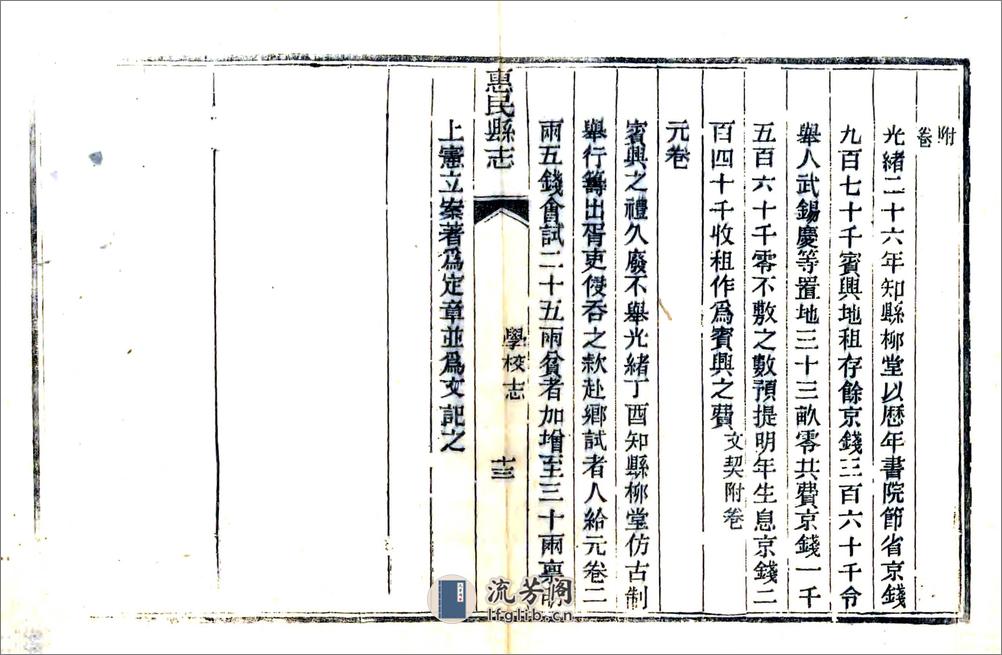 附卷
光緒二十六年知縣柳堂以歷年書院節省京錢
九百七十千賓興地租存餘京錢三百六十千令
舉人武錫慶等置地三十三畝零共費京錢一千
五百六十千零不敷之數預提明年生息京錢二
百四十千收租作爲賓興之費文契附卷
元卷
賓興之禮久廢不舉光緒丁酉知縣柳堂仿古制
舉行籌出胥吏侵吞之款赴鄉試者人給元卷二
兩五錢會試二十五兩貧者加增至三十兩稟
上憲立案著爲定章並爲文記之
惠民縣志
學校志
十三
流芳閣
lfglib.cn